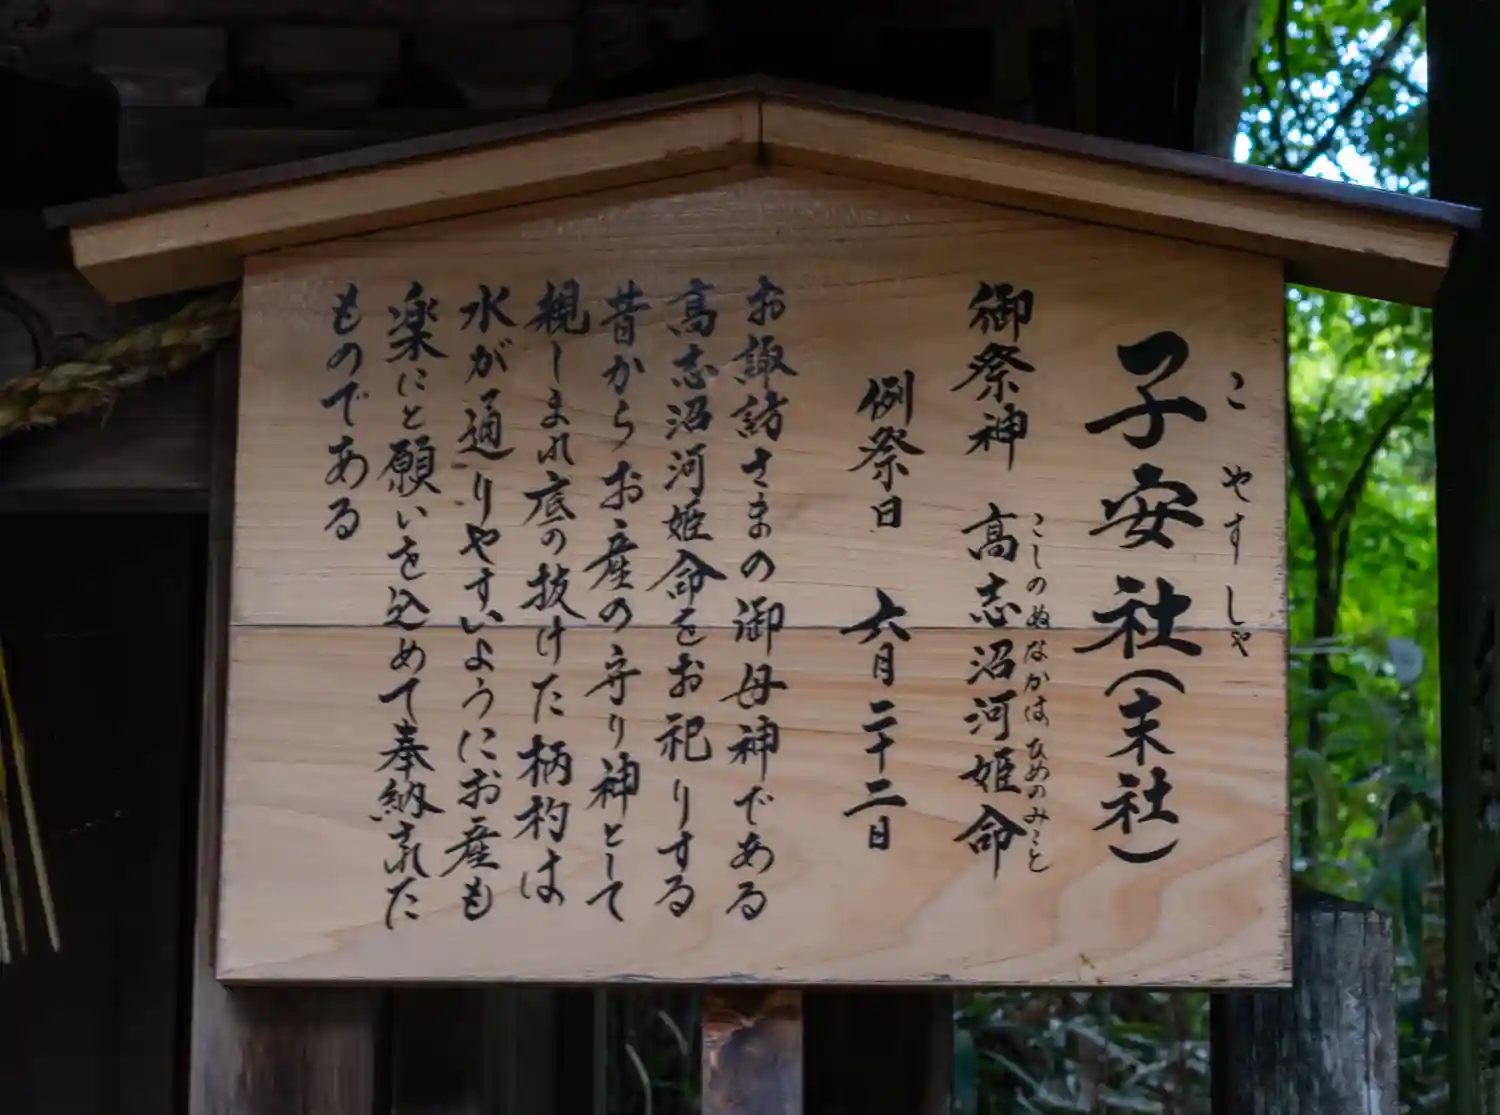 子安社(末社)
こやすしゃ
御祭神 高志沼河姫命
こしのぬなかはひめのみこと
例祭日 六月二十二日
お諏訪さまの御母神である
高志沼河姫命をお祀りする
昔からお産の守り神として
親しまれ底の抜けた柄杓は
水が通りやすいようにお産も
楽にと願いを込めて奉納された
ものである